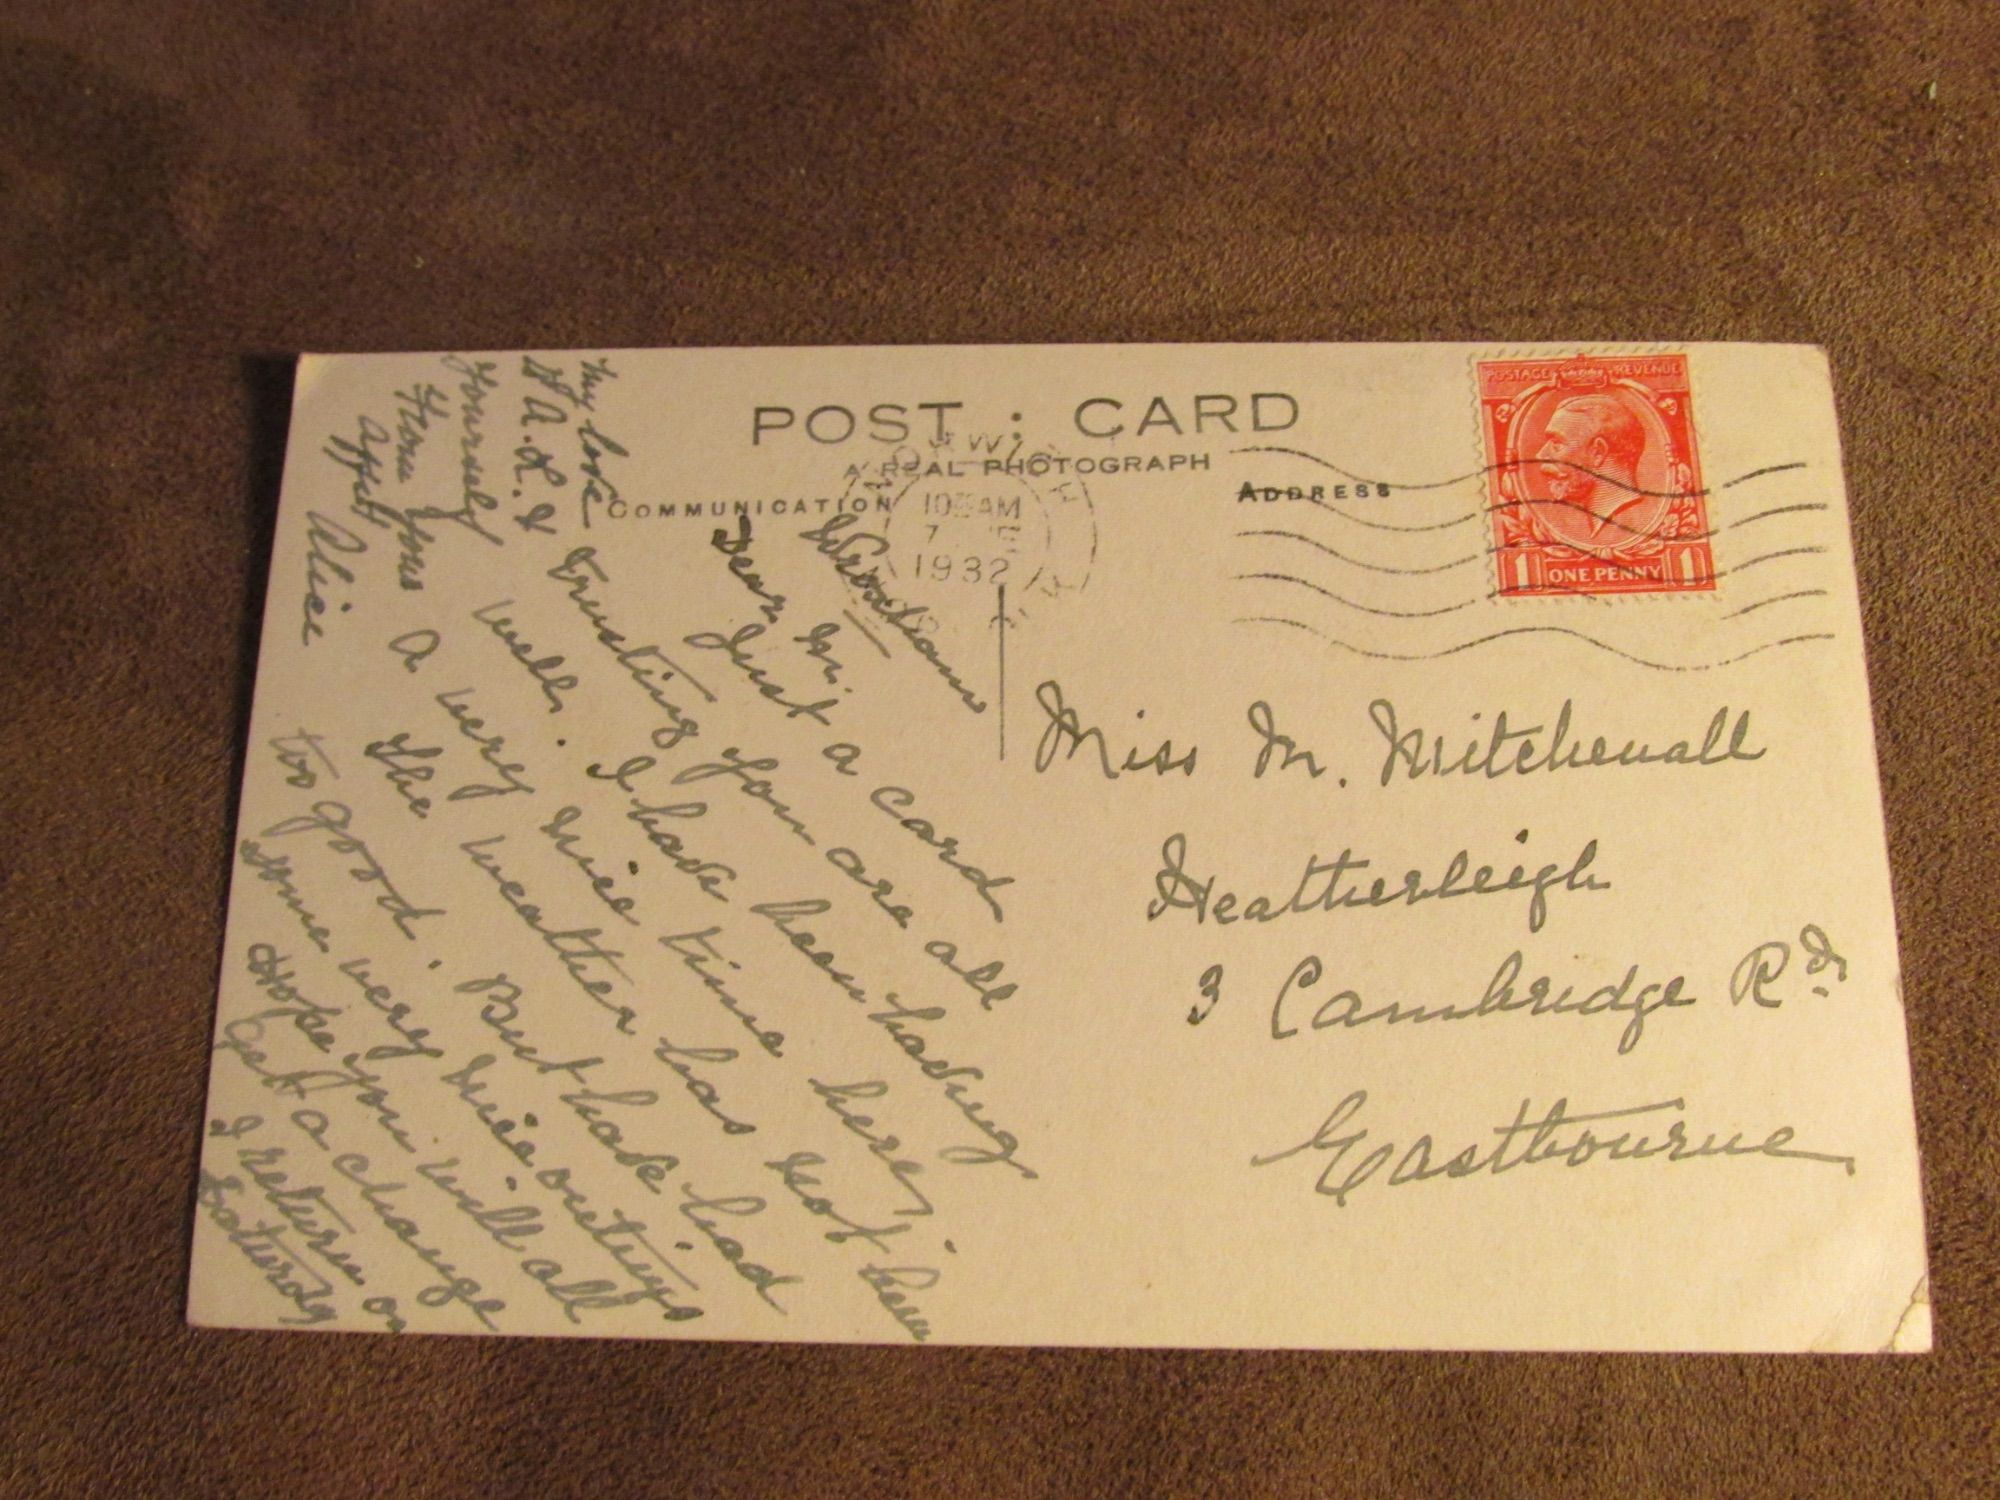 POST : CARD
A REAL PHOTOGRAPH
COMMUNICATION
ADDRESS
POSTAGE REVENUE
1 ONE PENNY 1
10 AM
7
1932
Wroxham
Dear M.
Just a card
Trusting you are all
well. I have been having
a very nice time here,
the weather has not been
too good. But have had
some very nice outings
Hope you will all
Get a change
I return on
Saturday
My love
A. L. &
Yourself
From yours
Affec
Alice
Miss M. Mitchenall
Heatherleigh
3 Cambridge Rd
Eastbourne